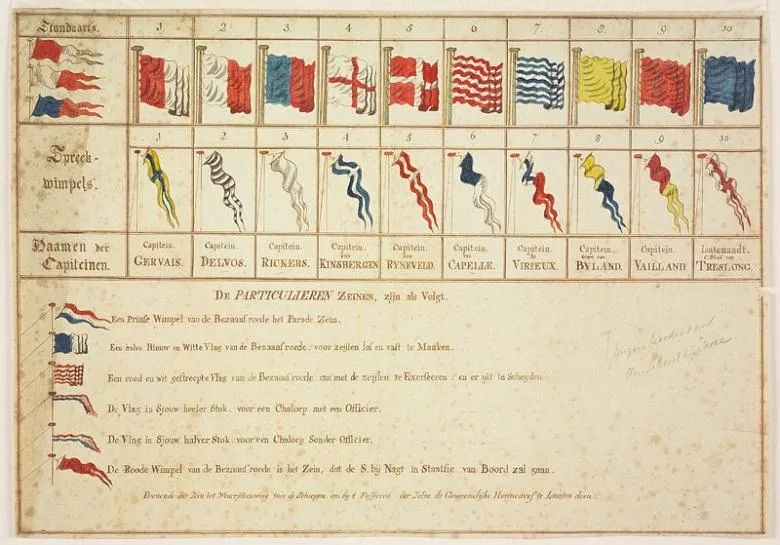 Standaarts. 1. 2. 3. 4. 5. 6. 7. 8. 9. 10.
Spreek-
wimpels. 1 2 3. 4. 5. 6. 7 8. 9 10.
Naamen der
Capiteinen.
Capitein.
GERVAIS.
Capitein.
DELVOS.
Capitein.
RICKERS.
Capitein.
van
KINSBERGEN
Capitein.
van
RYNEVELD.
Capitein.
van
CAPELLE.
Capitein.
de
VIRIEUX.
Capitein.
van
BYLAND.
Capitein.
VAILLAND.
Luitenandt.
van
TRESLONG.
DE PARTICULIEREN ZEINEN, zijn als Volgt.
Een Prinse Wimpel van de Bezaans roede het Parade Zein.
Een halve Blauw en Witte Vlag van de Bezaans roede, voor zeijlen los en vast te Maaken.
Een rood en wit gestreepte Vlag van de Bezaans roede, om met de zeijlen te Exerseeren, en er uit te Scheijden.
De Vlag in Sjouw heeler Stok, voor een Chaloep met een Officier.
De Vlag in Sjouw halver Stok, voor een Chaloep Sonder Officier.
De Roode Wimpel van de Bezaans roede is het Zein, dat de S. bij Nagt in Staatsie van Boord zal gaan.
Dienende dit Zein tot Waarschouwing voor de Scheepen, om bij t Passeeren der Zelve de Gewoonelyke te doen.